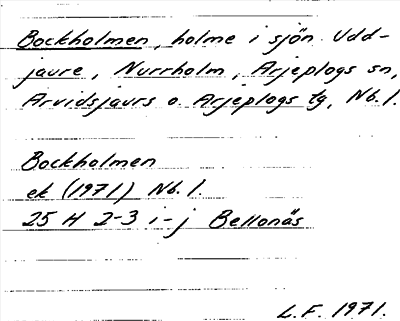 Bockholmen, holme i sjön Udd-
jaure, Nurrholm, Arjeplogs sn,
Arvidsjaurs o. Arjeplogs tg, Nb. l.
Bockholmen
ek (1971) Nb. l.
25 H 2-3 i-j Bellonäs
L. F. 1971.